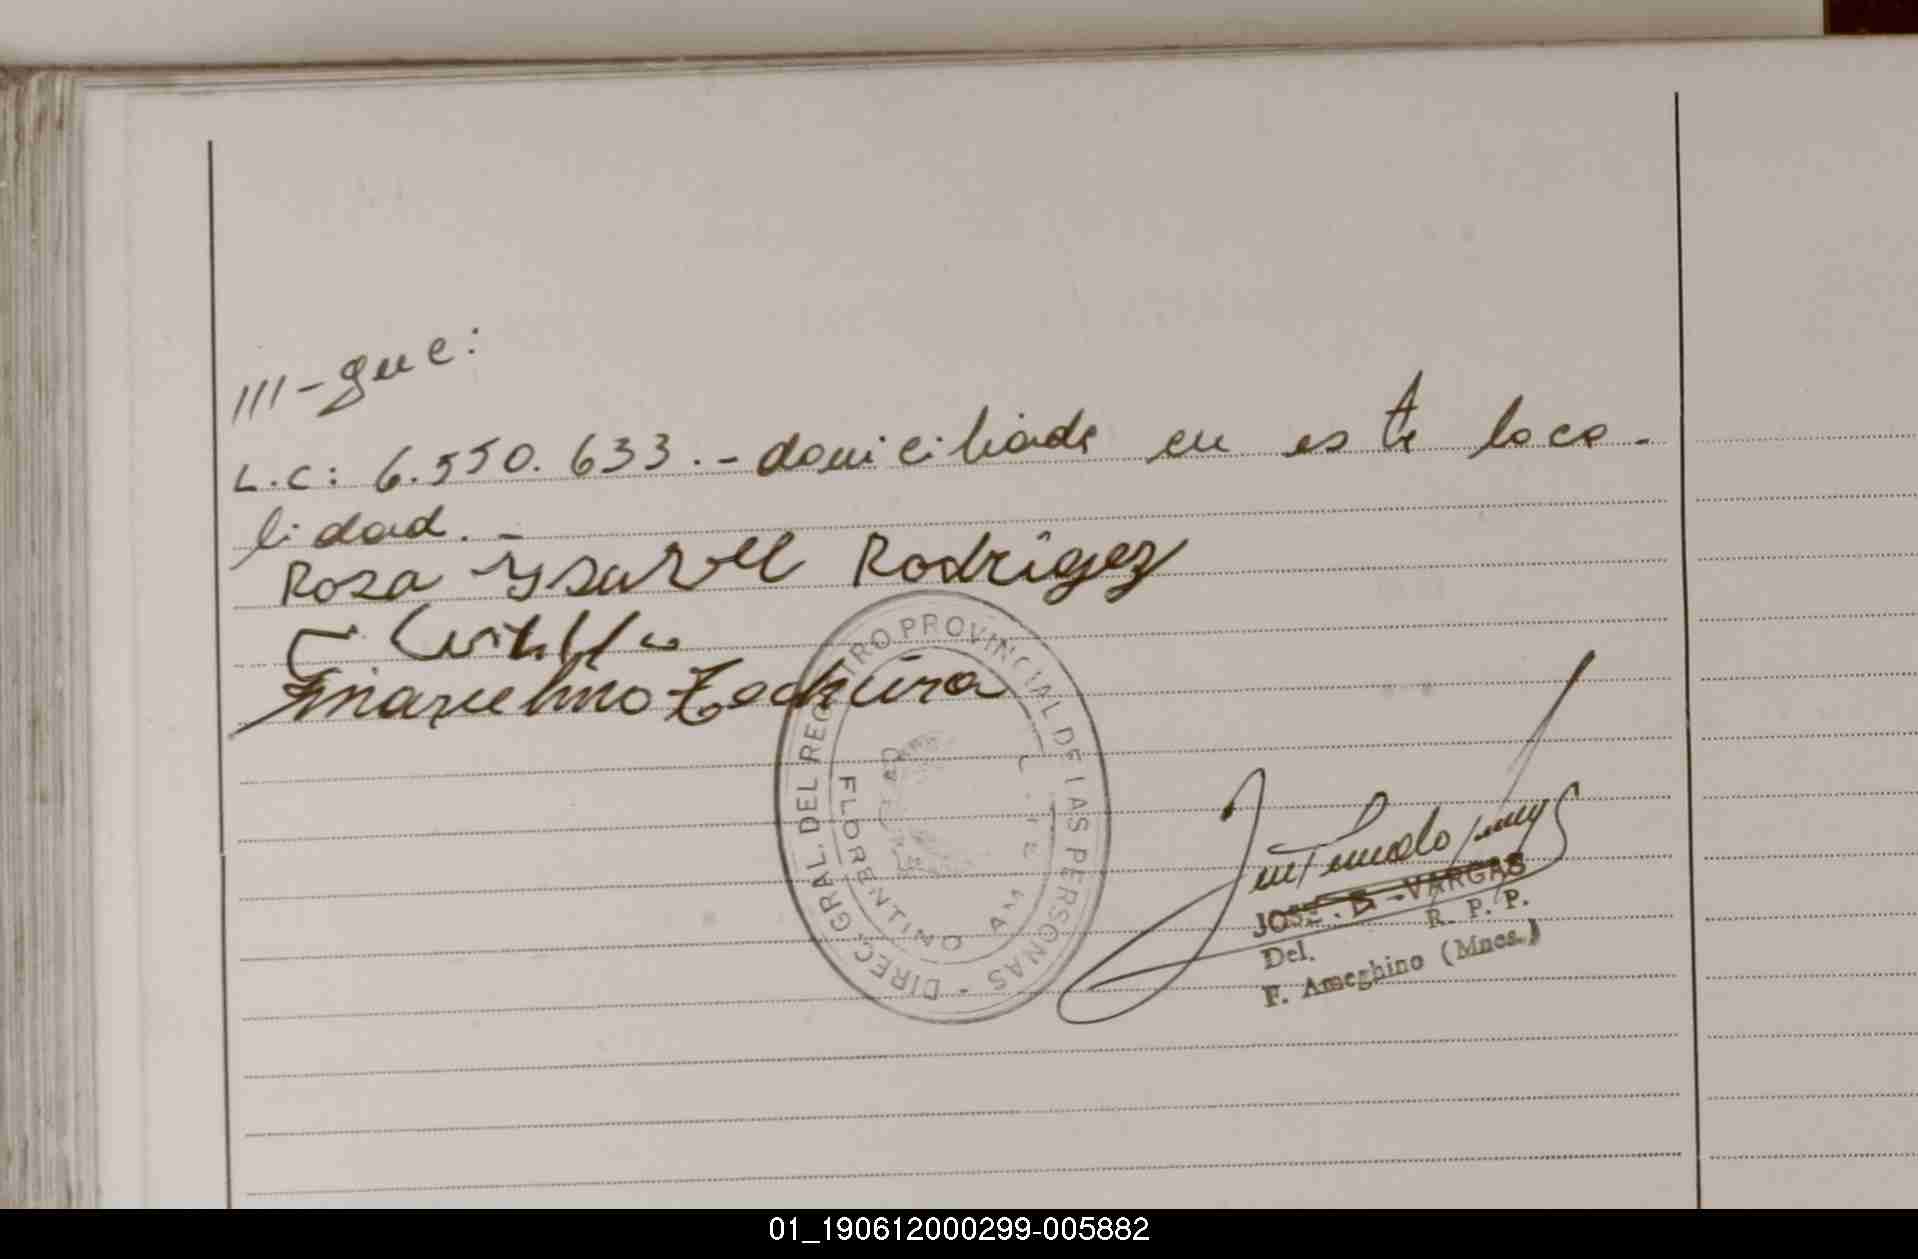 ///-gue:
L.C: 6.550.633.- domiciliada en este loca-
lidad.-
Rosa Ysabel Rodrigez
Marcelino
DIREC. GRAL. DEL REGISTRO PROVINCIAL DE LAS PERSONAS -
FLORENTINO AM
JOSE VARGAS
Del. R. P. P.
F. Ameghino (Mnes.)
01_190612000299-005882